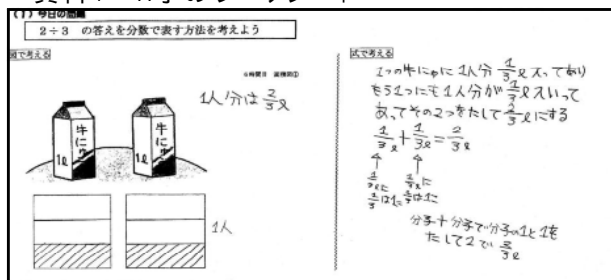 (1) 今日の問題
2÷3 の答えを分数で表す方法を考えよう
図で考える
1人分は 2/3 ℓ
牛にゅう
1ℓ
牛にゅう
1ℓ
1人
式で考える
1つの牛にゅうに 1人分 1/3 ℓ 入ってあり
もう1つにも 1人分が 1/3 ℓ 入って
あってその2つをたして 2/3 ℓ にする
1/3 ℓ + 1/3 ℓ = 2/3 ℓ
分子+分子で分子の1と1を
たして2で 2/3 ℓ